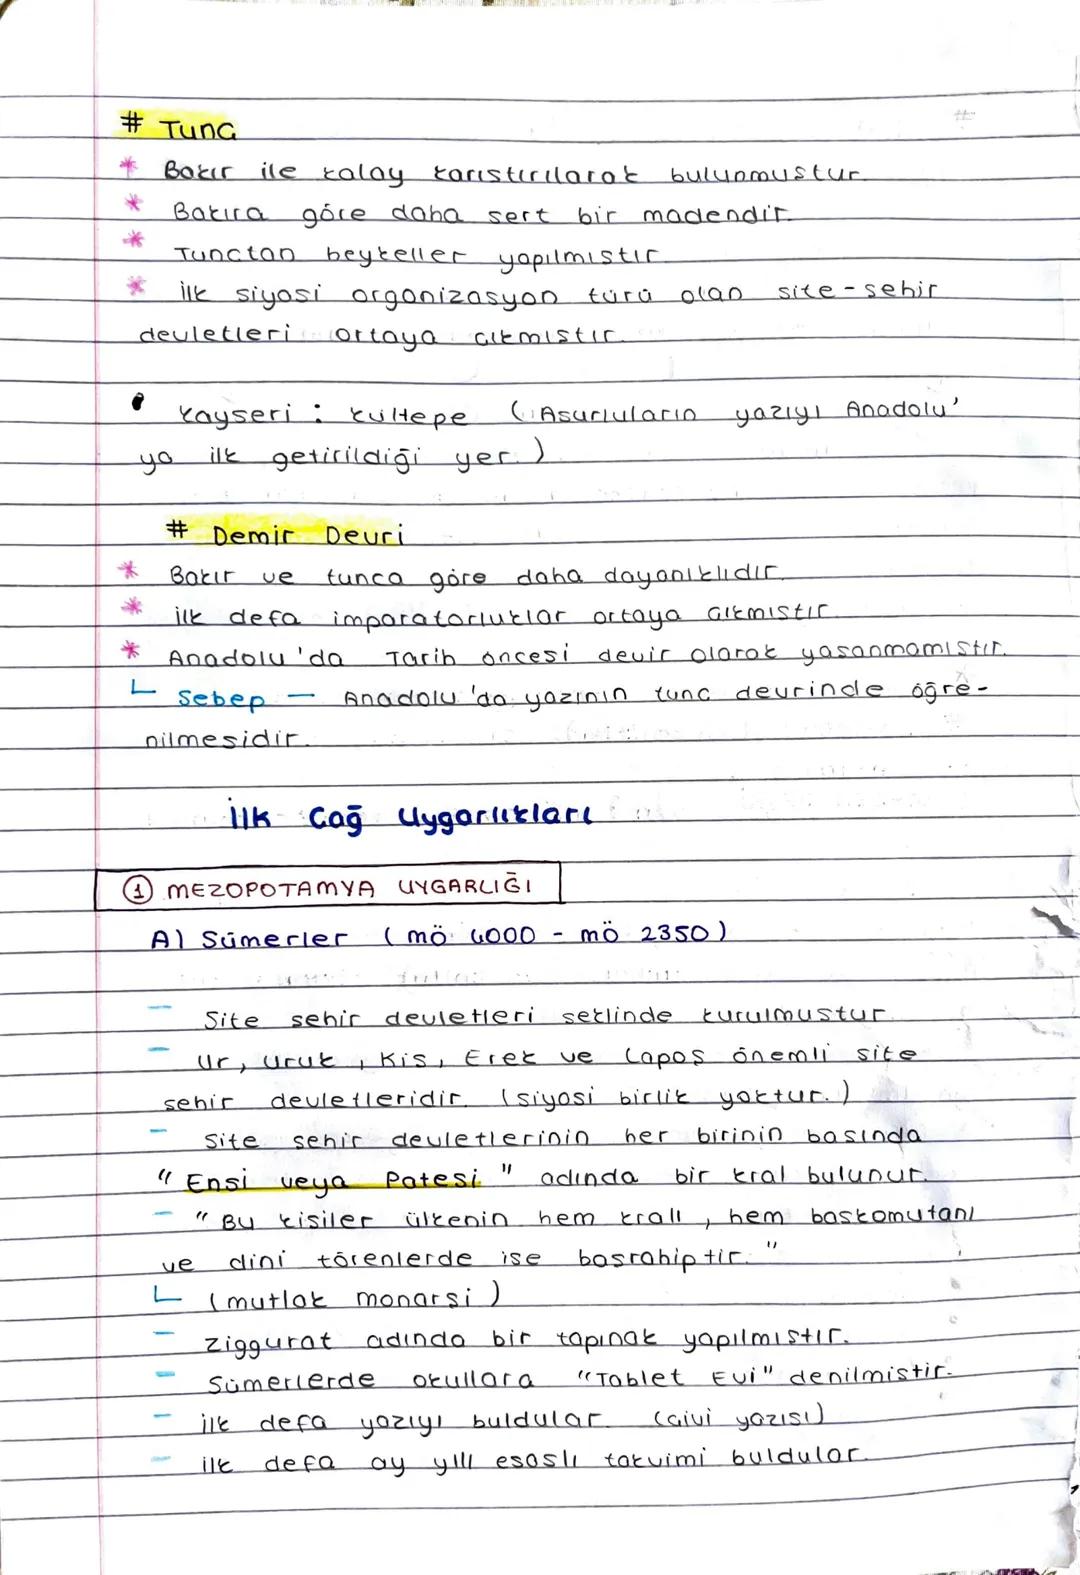 # Tunç
* Bakır ile kalay karıştırılarak bulunmuştur.
* Bakıra göre daha sert bir madendir.
* Tunçtan heykeller yapılmıştır.
* İlk siyasi organizasyon türü olan site-şehir
devletleri ortaya çıkmıştır.
• Kayseri : Kültepe (Asurluların yazıyı Anadolu'
ya ilk getirildiği yer.)
# Demir Devri
* Bakır ve tunca göre daha dayanıklıdır.
* İlk defa imparatorluklar ortaya çıkmıştır.
* Anadolu'da Tarih öncesi devir olarak yaşanmamıştır.
↳ Sebep — Anadolu'da yazının tunç devrinde öğre-
nilmesidir.
İlk Çağ Uygarlıkları
① MEZOPOTAMYA UYGARLIĞI
A) Sümerler (mö 4000 - mö 2350)
- Site şehir devletleri şeklinde kurulmuştur.
- Ur, Uruk, Kiş, Erek ve Lagaş önemli site
şehir devletleridir. (siyasi birlik yoktur.)
- Site şehir devletlerinin her birinin başında
"Ensi veya Patesi" adında bir kral bulunur.
- "Bu kişiler ülkenin hem kralı, hem başkomutanı
ve dini törenlerde ise başrahiptir."
↳ (mutlak monarşi)
- Ziggurat adında bir tapınak yapılmıştır.
- Sümerlerde okullara "Tablet Evi" denilmiştir.
- İlk defa yazıyı buldular. (çivi yazısı)
- İlk defa ay yılı esaslı takvimi buldular.